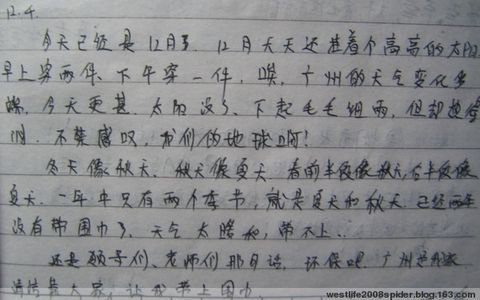 12.4.
今天已经是12月了. 12月天天还挂着个高高的太阳,
早上穿两件、下午穿一件. 唉, 广州的天气变化多
端, 今天更甚. 太阳没了、下起毛毛细雨, 但却
不禁感叹, 我们的地球啊!
冬天像秋天、秋天像夏天. 春前半段像秋天, 后半段像
夏天. 一年中只有两个季节, 就是夏天和秋天. 已经两年
没有带围巾了. 天气太暖和, 带不上..
还是硕子们、老师们那句话, 环保吧. 广州
让我带上围巾.
westlife2008spider.blog.163.com